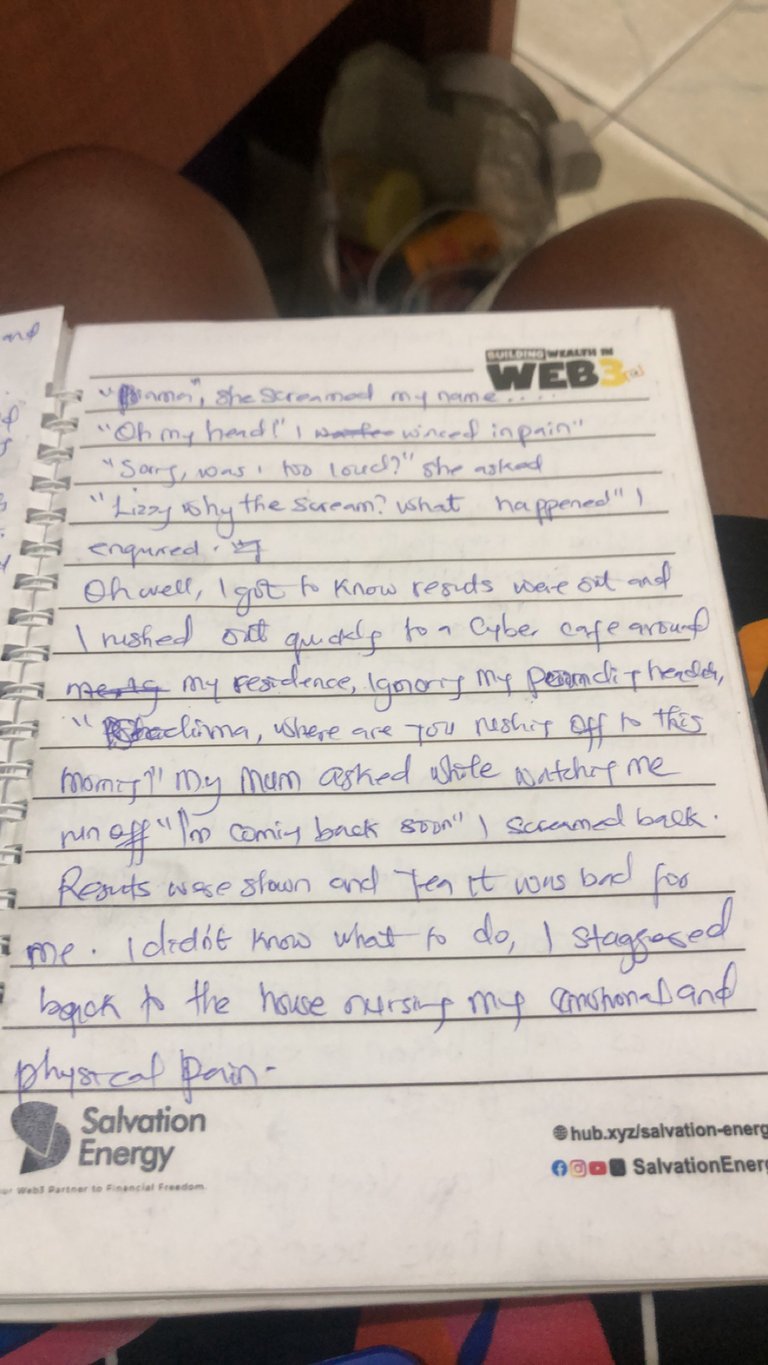 and
BUILDING WEALTH IN
WEB3
she screamed my name....
"Oh my head!" I winced in pain"
"Sorry, was I too loud?" she asked
"Lizzy why the scream? What happened" I
enqured.
Oh well, I got to know results were out and
I rushed out quickly to a Cyber cafe around
my residence, Ignoring my
where are you rushing off to this
morning" my mum asked while watching me
run off "I'm coming back soon" I screamed back.
Results were shown and it was bad for
me. I didn't know what to do, I staggered
back to the house nursing my emotional and
physical pain-
Salvation
Energy
ur Web3 Partner to Financial Freedom.
hub.xyz/salvation-energ
SalvationEner